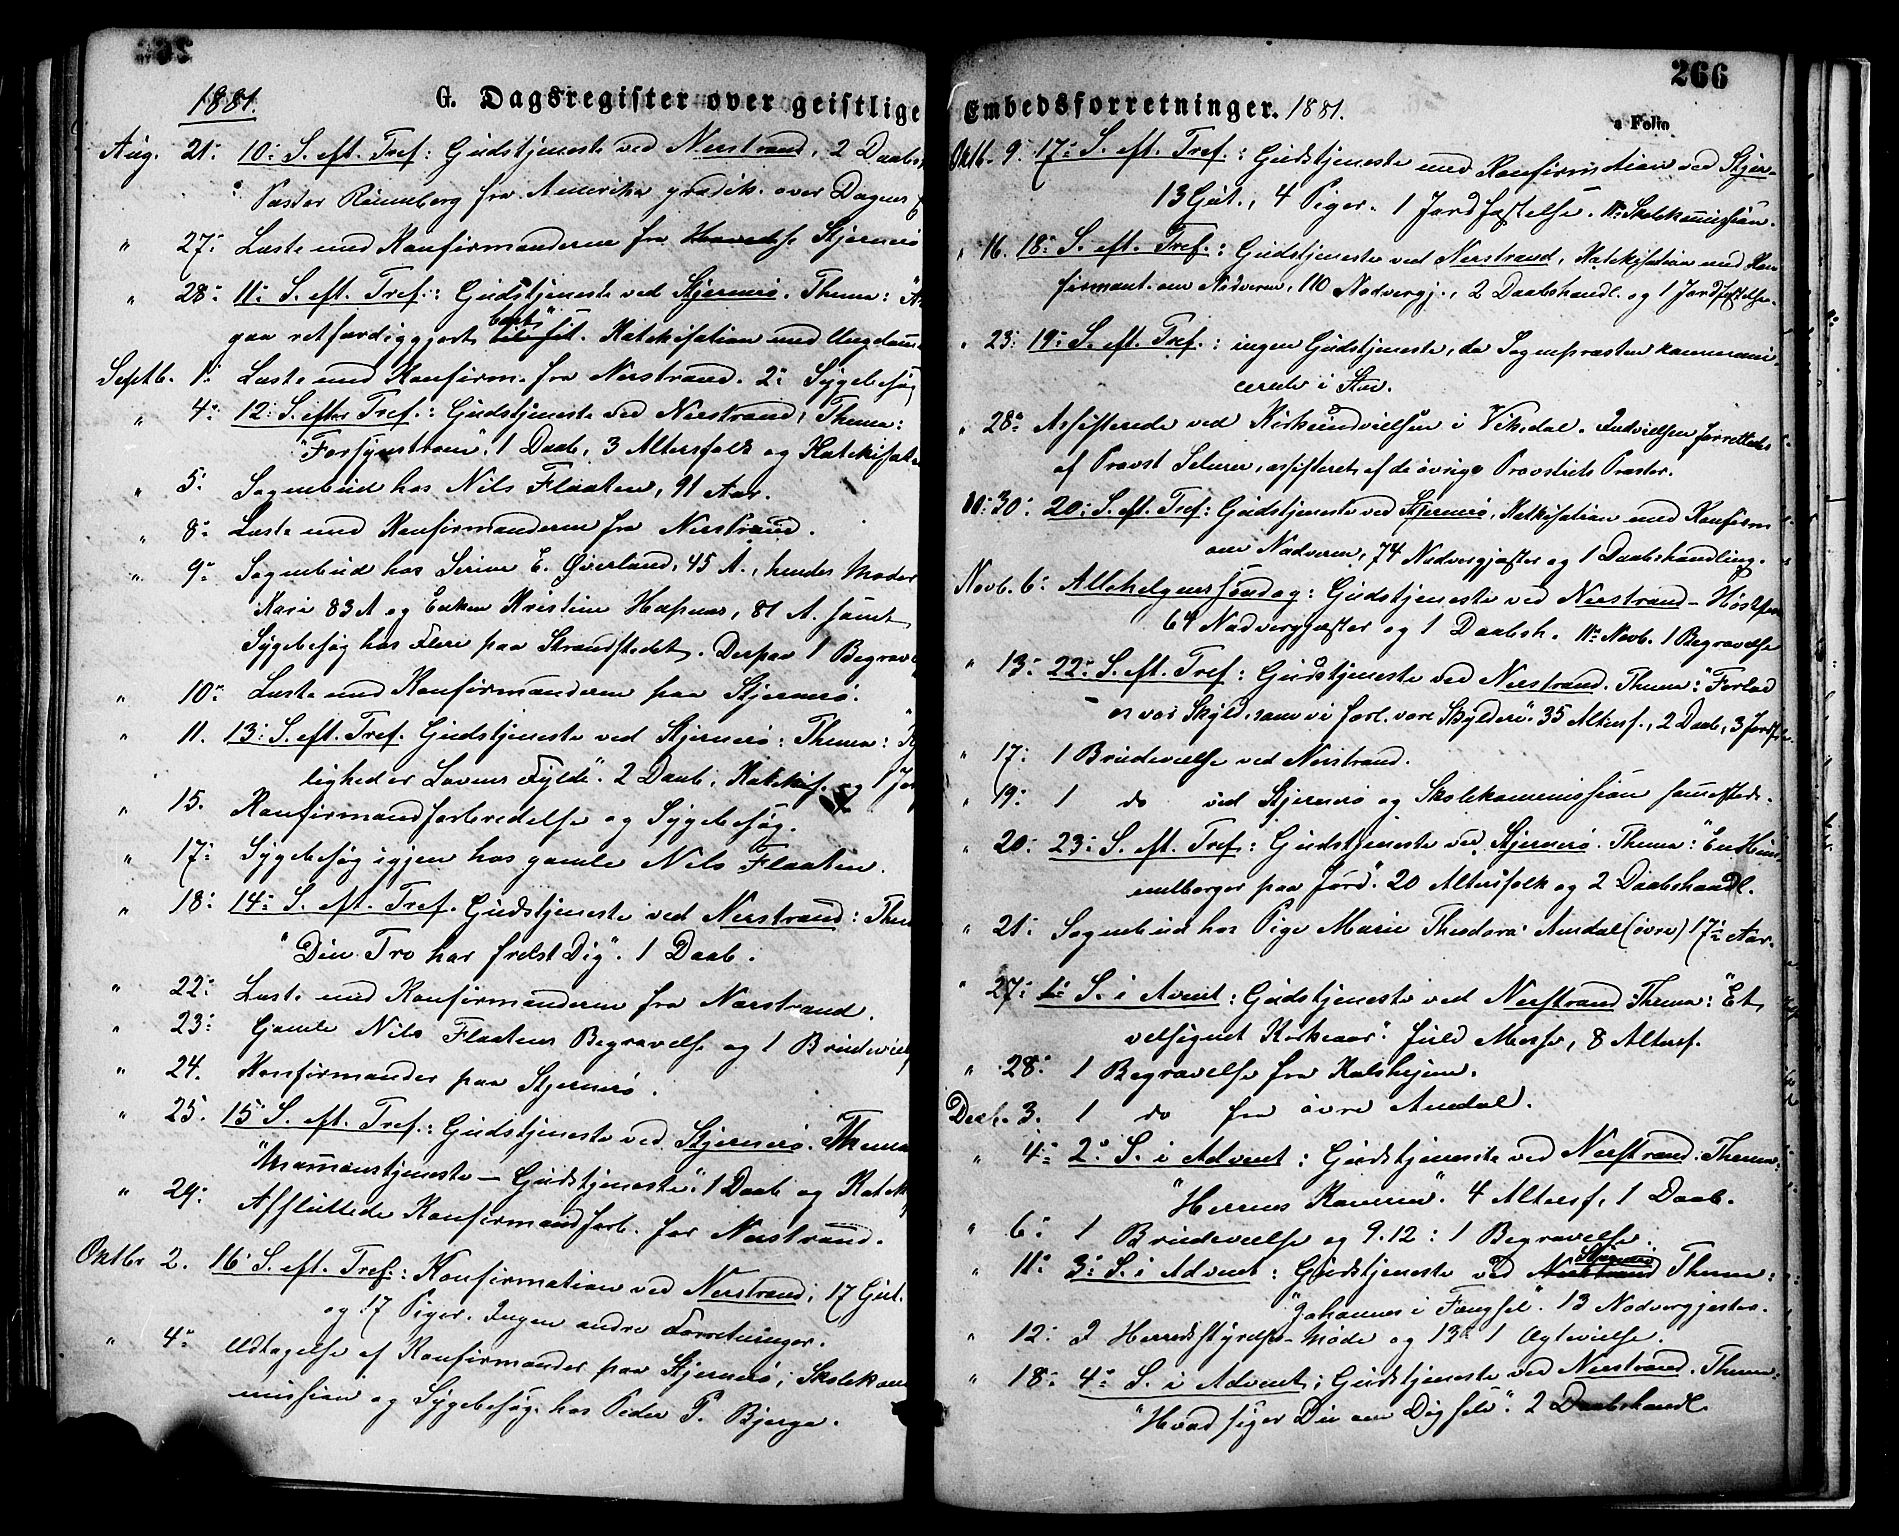 1881.
G. Dagsregister over geistlige
Aug. 21: 10: S. eft. Tref: Gudstjeneste ved Nerstrand, 2 Daabs
Pastor Rönneberg fra Amerika prædik. over Dagens
" 27: Læste med Konfirmanderne fra Stjernerö
" 28: 11: S. eft. Tref.: Gudstjeneste ved Stjernerö. Thema:
gaa retfærdiggjort bort". Katekisation med Ungdom
Septb. 1: Læste med Konfirm. fra Nerstrand. 2: Sygebesög
" 4: 12: S. efter Tref.: Gudstjeneste ved Nerstrand; Thema:
"Forsynstroen". 1 Daab, 3 Altersfolk og Katekisation
" 5: Sognebud hos Nils Flaaten, 91 Aar.
" 8: Læste med Konfirmanderne fra Nerstrand.
" 9: Sognebud hos Serine E. Øverland, 45 A., hendes Moder
Kari 83 A og Enken Kristine Hapnes, 81 A. samt
Sygebesög hos Flere paa Strandstedet. Derpaa 1 Begrav
" 10: Læste med Konfirmanderne paa Stjernerö.
" 11. 13: S. eft. Tref. Gudstjeneste ved Stjernerö: Thema:
lighed er Lovens Fylde". 2 Daab, Katekis. og 1
" 15. Konfirmandforberedelse og Sygebesög.
" 17: Sygebesög igjen hos gamle Nils Flaaten.
" 18: 14: S. eft. Tref. Gudstjeneste ved Nerstrand: Them
"Din Tro har frelst Dig". 1 Daab.
" 22: Læste med Konfirmanderne fra Nerstrand.
" 23: Gamle Nils Flaatens Begravelse og 1 Brudevielse
" 24. Konfirmander paa Stjernerö.
" 25. 15 S. eft. Tref.: Gudstjeneste ved Stjernerö. Thema
"Mamonstjeneste – Gudstjeneste". 1 Daab og Katek
" 29: Afsluttede Konfirmandforb. for Nerstrand.
Oktbr 2. 16 S. eft. Tref.: Konfirmation ved Nerstrand; 17 Gut.
og 17 Piger. Ingen andre Forretninger.
" 4: Udtagelse af Konfirmander paa Stjernerö; Skolekom
mission og Sygebesög hos Peder P. Bjerge.
266
Embedsforretninger. 1881.
a Folio
Oktb. 9: 17: S. eft. Tref.: Gudstjeneste med Konfirmation ved Stjer-
13 Gut., 4 Piger. 1 Jordfæstelse. 11: Skolekommission.
" 16. 18: S. eft. Tref.: Gudstjeneste ved Nerstrand, Katekisation med Kon
firmant. om Nadveren, 110 Nadvergj., 2 Daabshandl. og 1 Jordfæstelse.
" 23: 19: S. eft. Tref.: ingen Gudstjeneste, da Sognepræsten kommuni
cerede i
" 28: Assisterede ved Kirkeindvielsen i Vikedal. Indvielsen forrettedes
af Provst assisteret af de övrige Provstiets Præster.
30: 20: S. eft. Tref: Gudstjeneste ved Stjernerö, Katkisation med Konfirm
om Nadveren, 74 Nadvergjæster og 1 Daabshandling.
Novb. 6: Allehelgenssöndag: Gudstjeneste ved Nerstrand –
64 Nadvergjæster og 1 Daabsh. 11: Novb. 1 Begravelse
" 13: 22: S. eft. Tref: Gudstjeneste ved Nerstrand. Thema: "Forlad
os vor Skyld, som vi forl. vore Skyldnere". 35 Altersf., 2 Daab, 3 Jordf
" 17: 1 Brudevielse ved Nerstrand.
" 19: 1 do ved Stjernerö og Skolekommission samesteds.
" 20: 23: S. eft. Tref: Gudstjeneste ved Stjernerö. Thema: "En Him
melborger paa Jord". 20 Altersfolk og 2 Daabshandl.
" 21: Sognebud hos Pige Marie Theodora Amdal (övre) 17 Aar.
" 27: 1: S. i Avent: Gudstjeneste ved Nerstrand Thema: "Et
velsignet Kirkeaar". fuld Messe, 8 Altersf.
" 28: 1 Begravelse fra Kalsheim.
Decb. 3. 1 do fra övre Amdal.
" 4: 2: S. i Advent: Gudstjeneste ved Nerstrand. Thema:
"Herrens Kommen". 4 Altersf, 1 Daab.
" 6: 1 Brudevielse og 9.12: 1 Begravelse.
" 11: 3: S. i Advent: Gudstjeneste ved Stjernerö Thema:
"Johannes i Fængsel". 13 Nadvergjester.
" 12: I Herredsstyrelses-Möde og 13: 1 Ægtevielse.
" 18: 4: S. i Advent; Gudstjeneste ved Nerstrand. Thema:
"Hvad siger Du om Dig selv". 2 Daabshandl.